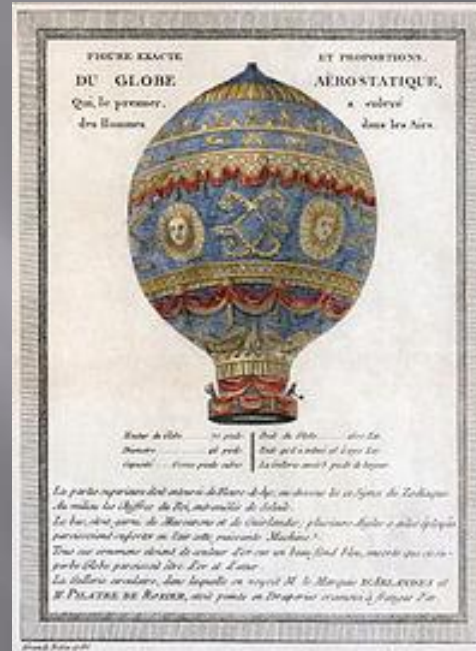 FIGURE EXACTE ET PROPORTIONS.
DU GLOBE AËROSTATIQUE,
Qui, le premier, a enlevé
des Hommes dans les Airs.
Hauteur du Globe 70 pieds
Diametre 46 pieds
Capacité pieds cubes
La Gallerie pieds de largeur
La partie superieure étoit entourée de Fleurs-de-lys, au-dessous les 12 Signes du Zodiaque.
Au milieu les Chiffres du Roi, entremêlés de Soleils.
Le bas étoit garni de Mascarons et de Guirlandes, plusieurs Aigles à ailes éployées
paroissoient supporter en l'air cette puissante Machine.
Tous ces ornemens étoient de couleur d'or sur un beau fond bleu, ensorte que ce su-
perbe Globe paroissoit être d'or et d'azur.
La Gallerie circulaire, dans laquelle on voyoit M. le Marquis D'ARLANDES et
M. PILATRE DE ROZIER, étoit peinte en Draperies cramoisi à franges d'or.